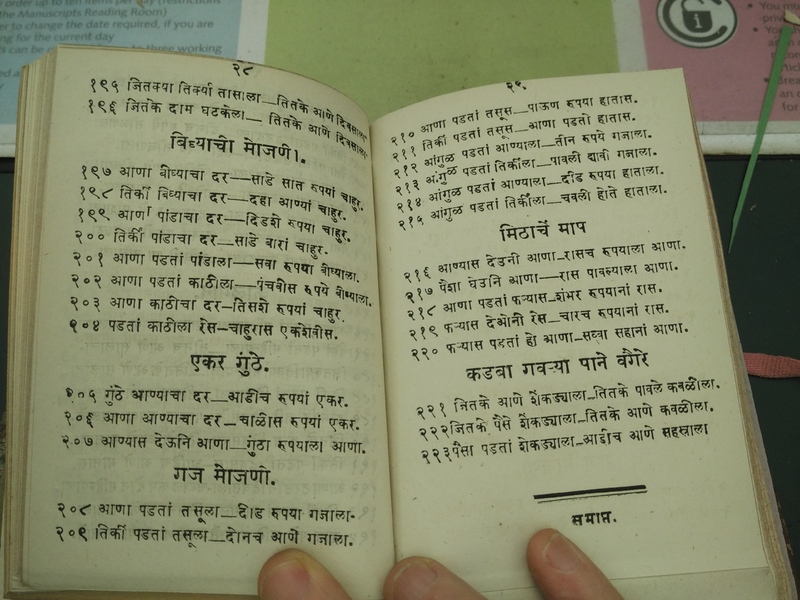 order up to ten items per day (restrictions
the Manuscripts Reading Room)
er to change the date required, if you are
ng for the current day
three working
२८
१९५ जितक्या तिर्क्या तासाला—तितके आणे दिवसाला
१९६ जितके दाम घटकेला—तितके आणे दिवसाला
बिघ्याची मोजणी.
१९७ आणा बीघ्याचा दर—साडे सात रुपयां चाहुर.
१९८ तिर्की बिघ्याचा दर—दहा आण्यां चाहुर.
१९९ आणा पांडाचा दर—दिडशे रूपया चाहुर.
२०० तिर्की पांडाचा दर—साडे बारां चाहुर.
२०१ आणा पडतां पांडाला—सवा रूपया बीघ्याला.
२०२ आणा पडतां काठीला—पंचवीस रूपये बीघ्याला.
२०३ आणा काठीचा दर—तिसशे रूपयां चाहुर.
२०४ पडतां काठीला रेस—चाहुरास एकशेवीस.
एकर गुंठे.
२०५ गुंठे आण्याचा दर—आडीच रूपयां एकर.
२०६ आणा आण्याचा दर—चाळीस रूपयां एकर.
२०७ आण्यास देऊनि आणा—गुंठा रूपयाला आणा.
गज मोजणी.
२०८ आणा पडतां तसूला—दीड रूपया गजाला.
२०९ तिर्की पडतां तसूला—दोनच आणे गजाला.
२९.
२१० आणा पडतां तसूस—पाऊण रूपया हातास.
२११ तिर्की पडतां तसूस—आणा पडतो हातास.
२१२ आंगुळ पडतां आण्याला—तीन रूपये गजाला.
२१३ आंगुळ पडतां तिर्कीला—पावली द्यावी गजाला.
२१४ आंगुळ पडतां आण्याला—दीड रूपया हाताला.
२१५ आंगुळ पडतां तिर्कीला—चवली होते हाताला.
मिठाचें माप
२१६ आण्यास देउनी आणा—रासच रूपयाला आणा.
२१७ पैशा घेउनि आणा—रास पावल्याला आणा.
२१८ आणा पडतां फऱ्यास—शंभर रूपयानां रास.
२१९ फऱ्यास देओनी रेस—चारच रूपयानां रास.
२२० फऱ्यास पडतां हो आणा—सव्वा सहानां आणा.
कडबा गवऱ्या पाने वगैरे
२२१ जितके आणे शेंकड्याला—तितके पावले कवळीला.
२२२ जितके पैसे शेंकड्याला—तितके आणे कवळीला.
२२३ पैसा पडतां शेकड्याला—आडीच आणे सहस्राला
समाप्त.